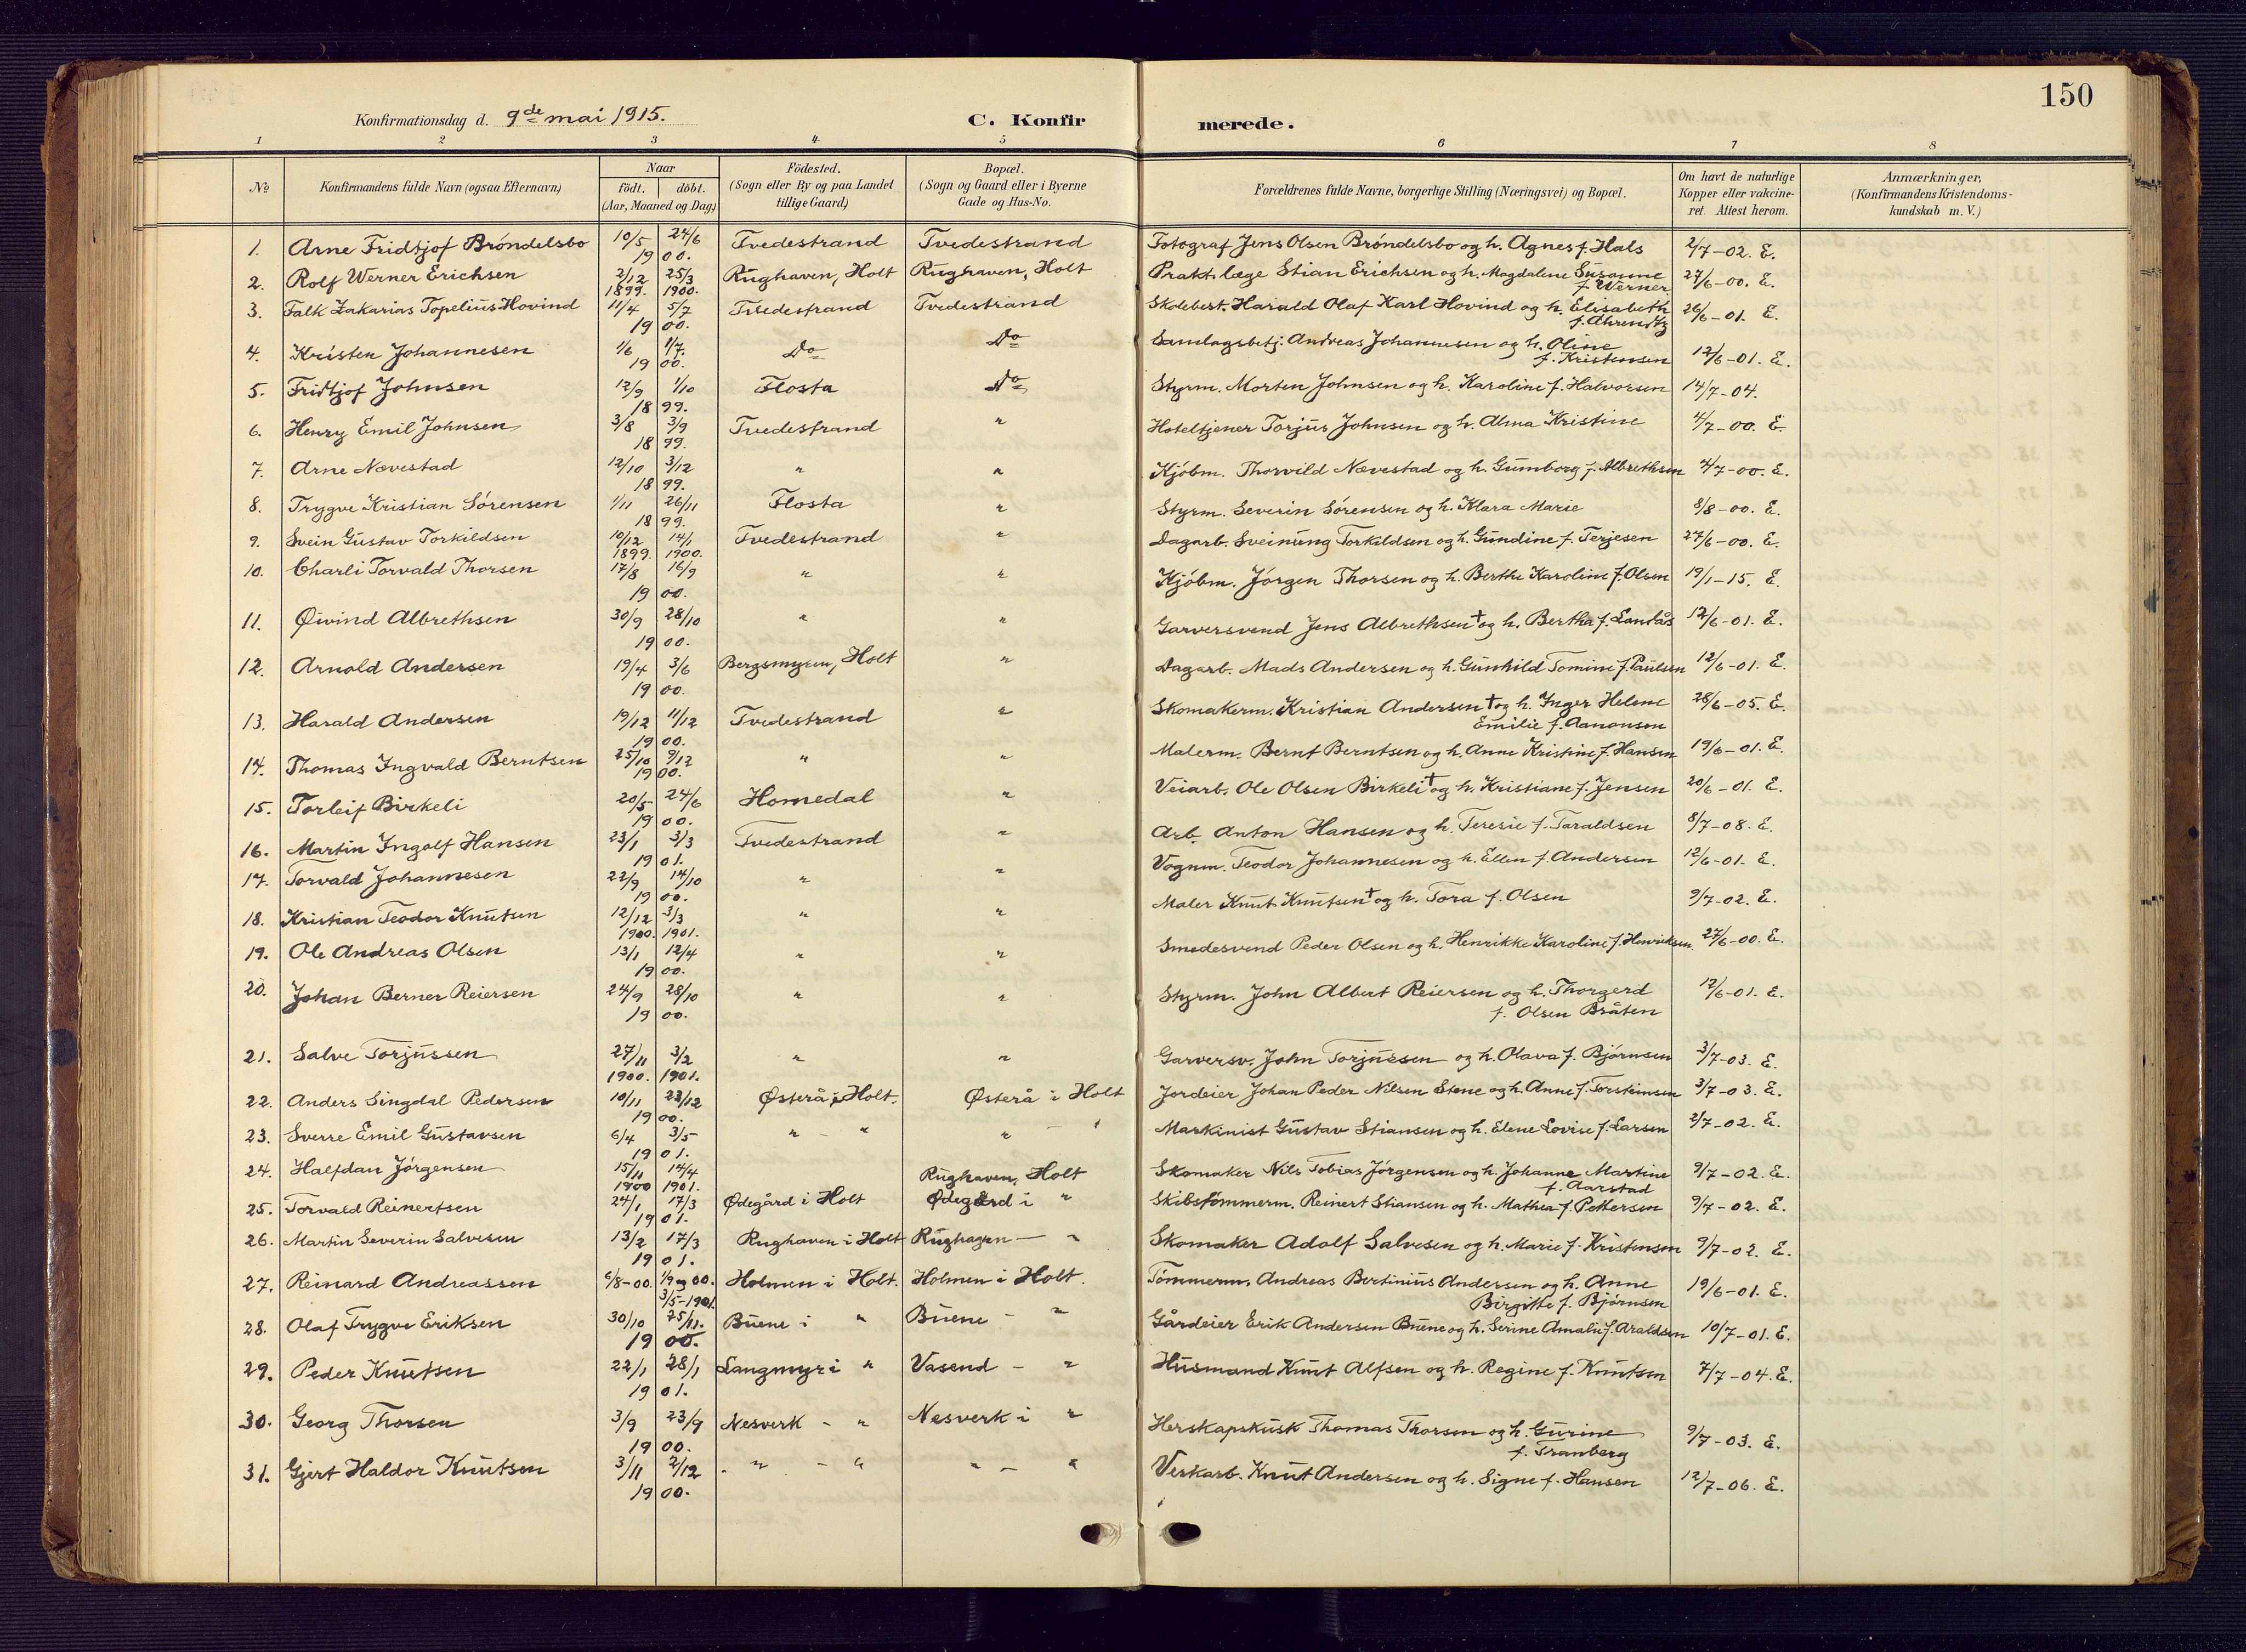 150
Konfirmationsdag d. 9de mai 1915. C. Konfirmerede.
1 2 3 4 5 6 7 8
No
Konfirmandens fulde Navn (ogsaa Efternavn)
Naar
födt. döbt.
(Aar, Maaned og Dag)
Födested.
(Sogn eller By og paa Landet
tillige Gaard)
Bopæl.
(Sogn og Gaard eller i Byerne
Gade og Hus-No.
Forældrenes fulde Navne, borgerlige Stilling (Næringsvei) og Bopæl.
Om havt de naturlige
Kopper eller vakcine-
ret. Attest herom.
Anmærkninger,
(Konfirmandens Kristendoms-
kundskab m. V.)
1. Arne Fridtjof Bröndelsbo 10/5 24/6 1900. Tvedestrand Tvedestrand Fotograf Jens Olsen Bröndelsbo og h. Agnes f. Hals 2/7-02. E.
2. Rolf Werner Erichsen 2/12 1899. 25/3 1900. Rughaven, Holt Rughaven, Holt Prakt. læge Stian Erichsen og h. Magdalene Susanne
f. Werner 27/6-00. E.
3. Falk Zakarias Topelius Hovind 11/4 5/7 1900. Tvedestrand Tvedestrand Skolebest. Harald Olaf Karl Hovind og h. Elisabeth
f. Ahrendtz 26/6-01. E.
4. Kristen Johannesen 1/6 1/7. 1900. Do Do Samlagsbetj. Andreas Johannesen og h. Oline
f. Kristensen 12/6-01. E.
5. Fridtjof Johnsen 12/9 1/10 1899. Flosta Do Styrm. Morten Johnsen og h. Karoline f. Halvorsen 14/7-04.
6. Henry Emil Johnsen 3/8 3/9 1899. Tvedestrand " Hoteltjener Torjus Johnsen og h. Alma Kristine 4/7-00. E.
7. Arne Nævestad 12/10 3/12 1899. " " Kjöbm. Thorvild Nævestad og h. Gumborg f. Albrethsen 4/7-00. E.
8. Trygve Kristian Sörensen 1/11 26/11 1899. Flosta " Styrm. Severin Sörensen og h. Klara Marie 8/8-00. E.
9. Svein Gustav Torkildsen 10/12 1899. 14/1 1900. Tvedestrand " Dagarb. Sveinung Torkildsen og h. Gundine f. Terjesen 27/6-00. E.
10. Charli Torvald Thorsen 17/8 16/9 1900. " " Kjöbm. Jörgen Thorsen og h. Berthe Karoline f. Olsen 19/1-15. E.
11. Øivind Albrethsen 30/9 28/10 1900. " " Garversvend Jens Albrethsen † og h. Bertha f. Landås 12/6-01. E.
12. Arnold Andersen 19/4 3/6 1900. Bergsmyren, Holt " Dagarb. Mads Andersen og h. Gunhild Tomine f. Paulsen 12/6-01. E.
13. Harald Andersen 19/12 11/12 1900. Tvedestrand " Skomakerm. Kristian Andersen † og h. Inger Helene
Emilie f. Aanonsen 28/6-05. E.
14. Thomas Ingvald Berntsen 25/10 9/12 1900. " " Malerm. Bernt Berntsen og h. Anne Kristine f. Hansen 19/6-01. E.
15. Torleif Birkeli 20/5 24/6 1900. Homedal " Veiarb. Ole Olsen Birkeli † og h. Kristiane f. Jensen 20/6-01. E.
16. Martin Ingolf Hansen 23/1 3/3 1901. Tvedestrand " Arb. Anton Hansen og h. Teresie f. Taraldsen 8/7-08. E.
17. Torvald Johannesen 22/9 14/10 1900. " " Vognm. Teodor Johannesen og h. Ellen f. Andersen 12/6-01. E.
18. Kristian Teodor Knutsen 12/12 1900. 3/3 1901. " " Maler Knut Knutsen † og h. Tora f. Olsen 9/7-02. E.
19. Ole Andreas Olsen 13/1 12/4 1900. " " Smedesvend Peder Olsen og h. Henrikke Karoline f. Henriksen. 27/6-00. E.
20. Johan Berner Reiersen 24/9 28/10 1900. " " Styrm. John Albert Reiersen og h. Thorgerd
f. Olsen Bråten 12/6-01. E.
21. Salve Torjussen 27/11 1900. 3/2 1901. " " Garversv. John Torjussen og h. Olava f. Björnsen 3/7-03. E.
22. Anders Singdal Pedersen 10/11 23/12 1900. Østerå i Holt. Østerå i Holt Jordeier Johan Peder Nilsen Stene og h. Anne f. Torsteinsen 3/7-03. E.
23. Sverre Emil Gustavsen 6/4 3/5 1901. " - " " - " Maskinist Gustav Stiansen og h. Elene Lovise f. Larsen 2/7-02. E.
24. Halfdan Jörgensen 15/11 1900 14/4 1901. Rughaven, Holt Skomaker Nils Tobias Jörgensen og h. Johanne Martine
f. Aarstad 9/7-02. E.
25. Torvald Reinertsen 24/1 17/3 1901. Ødegård i Holt Ødegård i " Skibstömmerm. Reinert Stiansen og h. Mathea f. Pettersen 9/7-02. E.
26. Martin Severin Salvesen 13/2 17/3 1901. Rughaven i Holt Rughagen - " Skomaker Adolf Salvesen og h. Marie f. Kristensen 9/7-02. E.
27. Reinard Andreassen 6/8-00. 1/9 og 00. 3/5-1901. Holmen i Holt. Holmen i Holt. Tömmerm. Andreas Bertinius Andersen og h. Anne
Birgitte f. Björnsen 19/6-01. E.
28. Olaf Trygve Eriksen 30/10 25/11. 1900. Buene i " Buene - " Gårdeier Erik Andersen Buene og h. Serine Amalie f. Araldsen 10/7-01. E.
29. Peder Knutsen 22/1 28/1 1901. Langmyr i " Vasend - " Husmand Knut Alfsen og h. Regine f. Knutsen 7/7-04. E.
30. Georg Thorsen 3/9 23/9 1900. Nesverk - " Nesverk i " Herskapskusk Thomas Thorsen og h. Gurine
f. Tranberg 9/7-03. E.
31. Gjert Haldor Knutsen 3/11 2/12 1900. " - " " - " Verkarb. Knut Andersen og h. Signe f. Hansen 12/7-06. E.